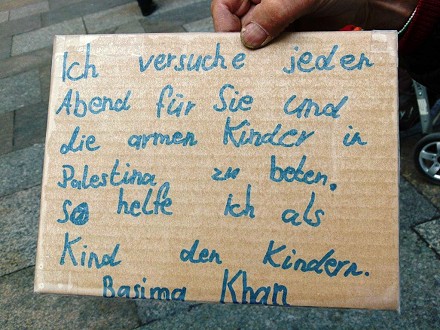 Ich versuche jeden
Abend für Sie und
die armen Kinder in
Palestina zu beten.
So helfe ich als
Kind den Kindern.
Basima Khan